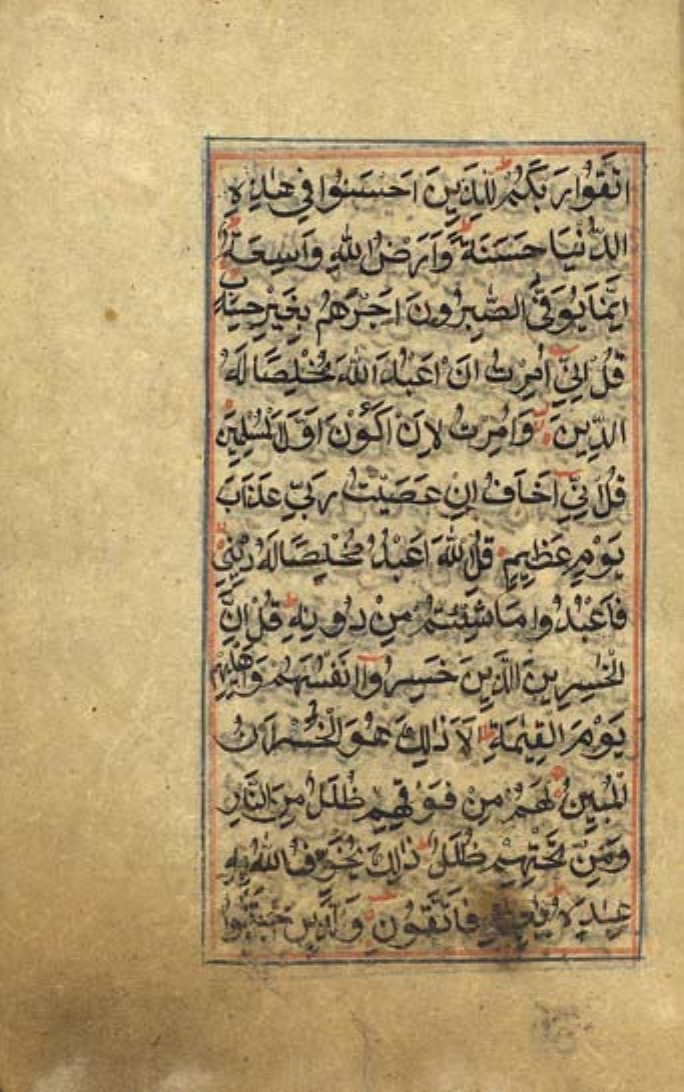 اتَّقُوا رَبَّكُمْ لِلَّذِينَ اَحْسَنُوا فِي هٰذِهِ
الدُّنْيَا حَسَنَةٌ وَاَرْضُ اللهِ وَاسِعَةٌ
اِنَّمَا يُوَفَّى الصّٰبِرُونَ اَجْرَهُمْ بِغَيْرِ حِسَابٍ
قُلْ اِنِّي اُمِرْتُ اَنْ اَعْبُدَ اللهَ مُخْلِصًا لَهُ
الدِّينَ وَاُمِرْتُ لِاَنْ اَكُونَ اَوَّلَ الْمُسْلِمِينَ
قُلْ اِنِّي اَخَافُ اِنْ عَصَيْتُ رَبِّي عَذَابَ
يَوْمٍ عَظِيمٍ قُلِ اللهَ اَعْبُدُ مُخْلِصًا لَهُ دِينِي
فَاعْبُدُوا مَا شِئْتُمْ مِنْ دُونِهِ قُلْ اِنَّ
الْخٰسِرِينَ الَّذِينَ خَسِرُوا اَنْفُسَهُمْ وَاَهْلِيهِمْ
يَوْمَ الْقِيٰمَةِ اَلَا ذٰلِكَ هُوَ الْخُسْرَانُ
الْمُبِينُ لَهُمْ مِنْ فَوْقِهِمْ ظُلَلٌ مِنَ النَّارِ
وَمِنْ تَحْتِهِمْ ظُلَلٌ ذٰلِكَ يُخَوِّفُ اللهُ بِهِ
عِبَادَهُ يٰعِبَادِ فَاتَّقُونِ وَالَّذِينَ اجْتَنَبُوا